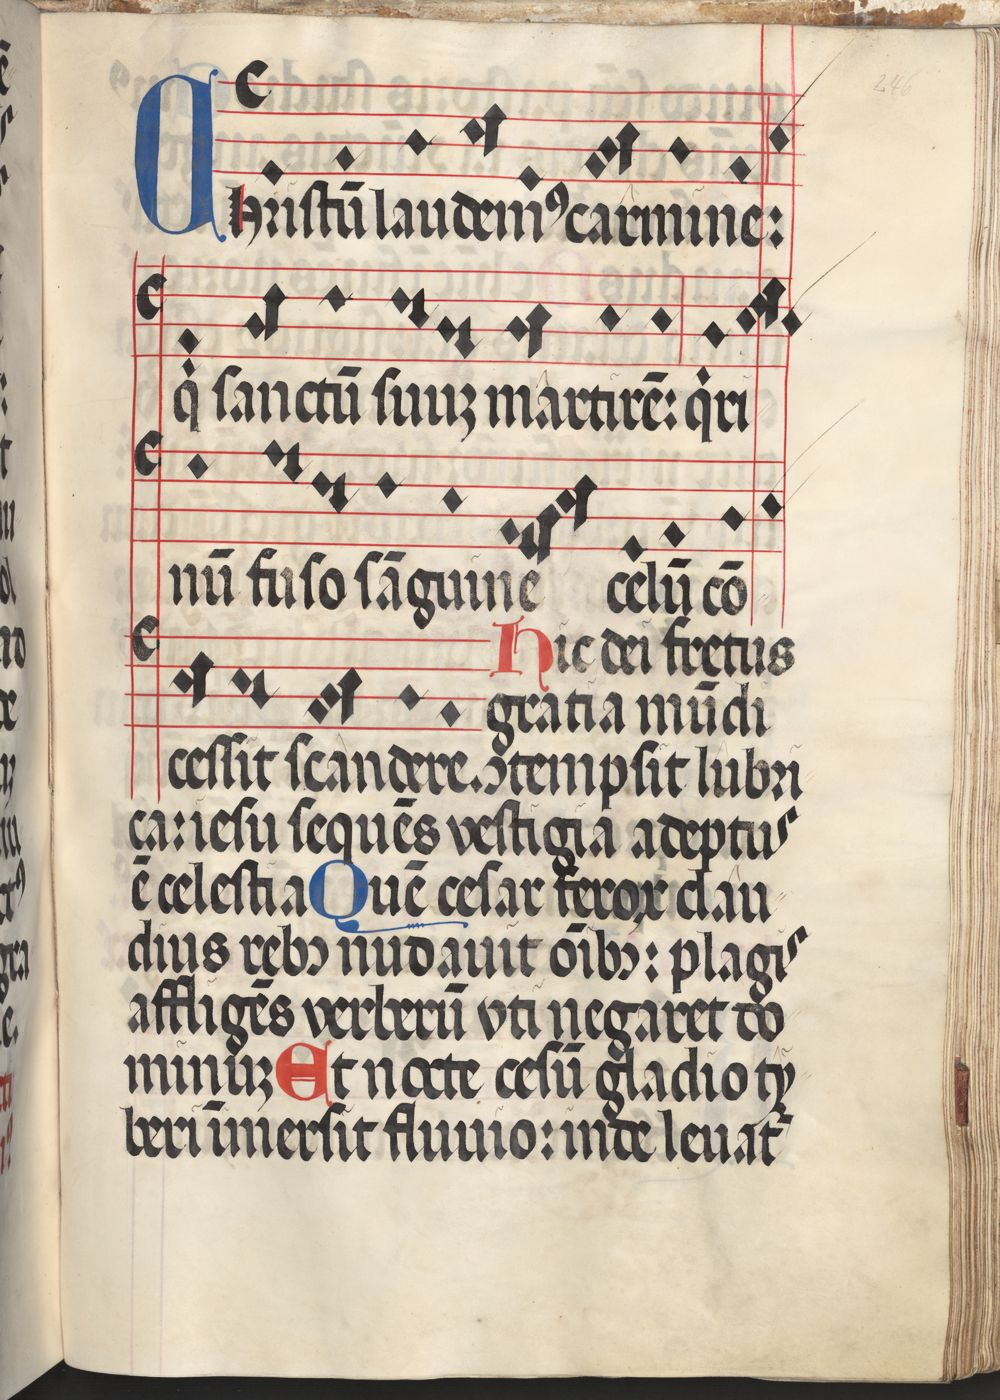 246
Christū laudem⁹ carmine:
q̇ sanctū suuꝫ martirē: q̇ri
nū fuso sāguine celū cō
Hic dei fretus
gratia mūdi
cessit scandere. ↄtempsit lubri
ca: iesu sequēs vestigia adeptus
ē celestia Quē cesar ferox clau
dius rebↄ nudauit oībↄ: plagis
affligēs verberū vti negaret do
minuꝫ Et nocte cesū gladio ty
beri īmersit fluuio: inde leuat᷑